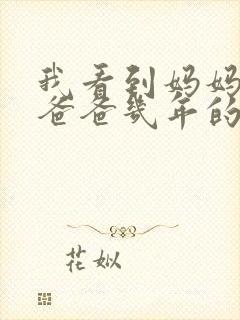 我看到妈妈
爸爸几年的
花姒